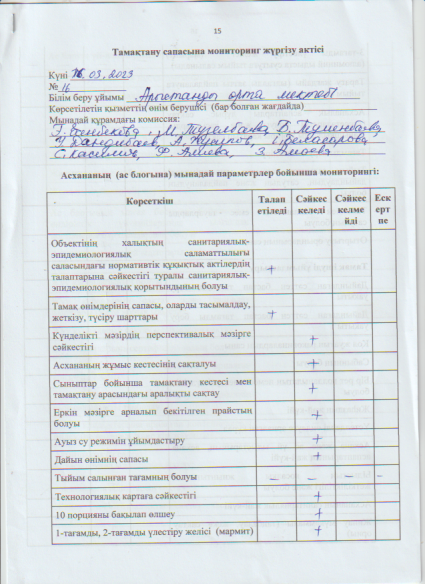 15
Тамақтану сапасына мониторинг жүргізу актісі
Күні 16.03.2023
№ 16
Білім беру ұйымы орта мектебі
Көрсетілетін қызметтің өнім берушісі (бар болған жағдайда)
Мынадай құрамдағы комиссия:
Асхананың (ас блогына) мынадай параметрлер бойынша мониторингі:
Көрсеткіш Талап етіледі Сәйкес келеді Сәйкес келмейді Ескертпе
Объектінің халықтың санитариялык-
эпидемиологиялық саламаттылығы
саласындағы нормативтік құқықтық актілердің
талаптарына сәйкестігі туралы санитариялық-
эпидемиологиялық қорытындының болуы +
Тамақ өнімдерінің сапасы, оларды тасымалдау,
жеткізу, түсіру шарттары +
Күнделікті мәзірдің перспективалық мәзірге
сәйкестігі +
Асхананың жұмыс кестесінің сақталуы +
Сыныптар бойынша тамақтану кестесі мен
тамақтану арасындағы аралықты сақтау +
Еркін мәзірге арналып бекітілген прайстың
болуы +
Ауыз су режимін ұйымдастыру +
Дайын өнімнің сапасы +
Тыйым салынған тағамның болуы - - - -
Технологиялық картаға сәйкестігі +
10 порцияны бақылап өлшеу +
1-тағамды, 2-тағамды үлестіру желісі (мармит) +